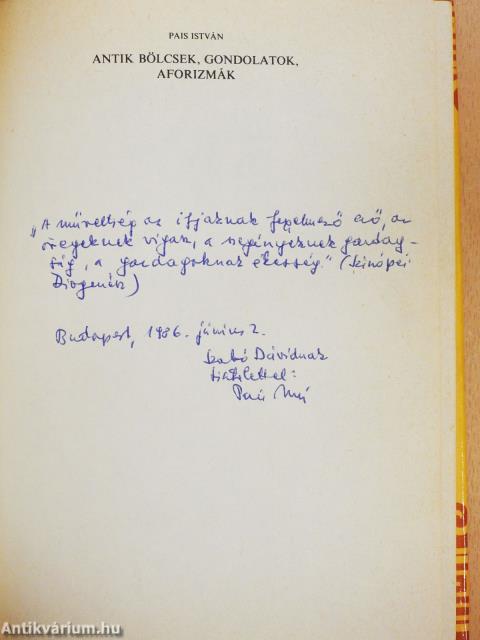 PAIS ISTVÁN
ANTIK BÖLCSEK, GONDOLATOK,
AFORIZMÁK
„A műveltség az ifjaknak fegyelmező erő, az
öregeknek vigasz, a szegényeknek gazdag-
ság, a gazdagoknak ékesség." (Szinópéi
Diogenész)
Budapest, 1986. június 2.
Szabó Dávidnak
tisztelettel:
Pais
Antikvárium.hu